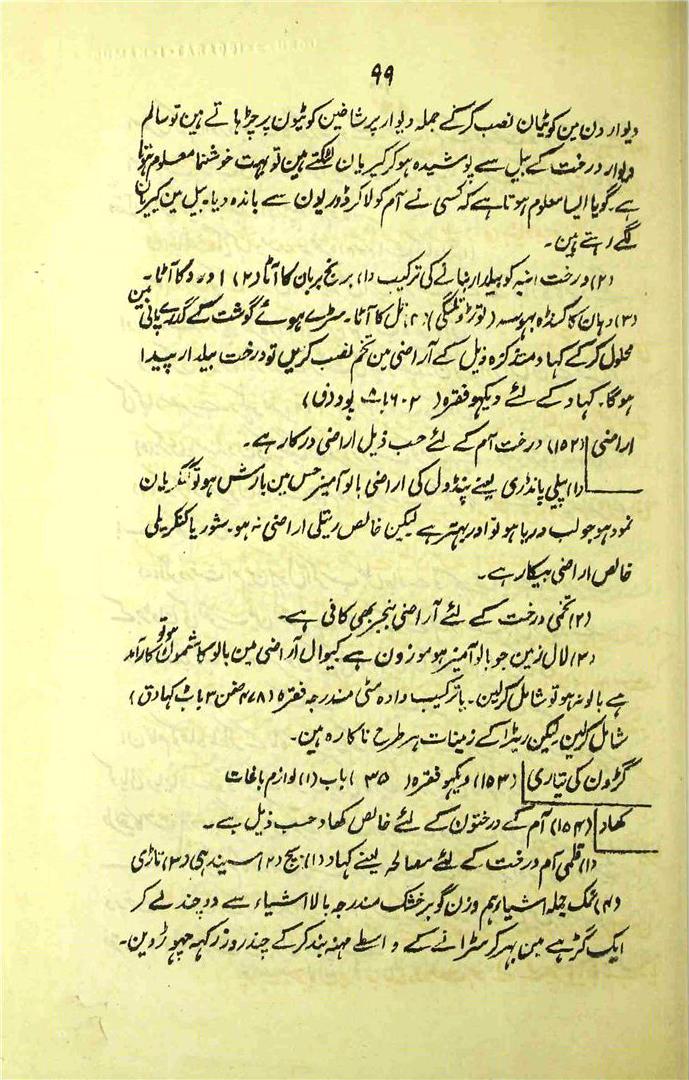 ۹۹
دیوار دن مین کوٹیان نصب کرکے جملہ دیوار پر شاخین کوٹیون پر چڑہاتے ہین تو سالم
دیوار درخت کے بیل سے پوشیدہ ہوکر کیریان لٹکتے ہین تو بہت خوشنما معلوم ہوتا
ہے۔ گویا ایسا معلوم ہوتا ہے کہ کسی نے آم کو لاکر ڈوریون سے باندہ دیا۔ بیل مین کیریان
لگے رہتے ہین۔
(۲) درخت انبہ کو بیلدار بنانے کی ترکیب (۱) برنج بریان کا آٹا (۲) اوڑد کا آٹا۔
(۳) دہان کا کونڈہ بہوسہ (توڑ وتلنگی) (۴) تل کا آٹا۔ سڑے ہوئے گوشت کے گدلے پانی مین
محلول کرکے کہاد متذکرہ ذیل کے آراضی مین تخم نصب کرین تو درخت بیلدار پیدا
ہوگا۔ کہاد کے لئے دیکہو فقرہ (۶۰۲ باب پودد ف)
اراضی (۱۵۲) درخت آم کے لئے حسب ذیل اراضی درکار ہے۔
(۱) پیلی پانڈری یعنے پنڈول کی اراضی بالو آمیز جس مین بارش ہو تو کنکریان
نمود ہو جو لب دریا ہو تو اور بہتر ہے لیکن خالص ریتلی اراضی نہ ہو۔ شور یا کنکریلی
خالص اراضی بیکار ہے۔
(۲) تخمی درخت کے لئے آراضی بنجر بھی کافی ہے۔
(۳) لال زمین جو بالو آمیز ہو موزون ہے کیوال آراضی مین بالو کا شمول ہو تو کارآمد
ہے بالو نہ ہو تو شامل کرلین۔ یا ترکیب دادہ مٹی مندرجہ فقرہ (۴۷۸ ضمن ۳ باب کہاد ق)
شامل کرلین لیکن ریڑا کے زمینات ہر طرح ناکارہ ہین۔
گڑون کی تیاری (۱۵۳) دیکہو فقرہ (۳۵) باب (۱) لوازم باغات
کھاد (۱۵۴) آم کے درختون کے لئے خالص کھاد حسب ذیل ہے۔
(۱) قلمی آم درخت کے لئے معالجہ یعنے کہاد (۱) بیج (۲) سیندہی (۳) تاڑی
(۴) نمک جملہ اشیاء ہم وزن گوبر خشک مندرجہ بالا اشیاء سے دوچند لے کر
ایک گڑہے مین بہر کر سڑانے کے واسطے مہنہ بند کرکے چند روز رکہہ چہوڑ دین۔